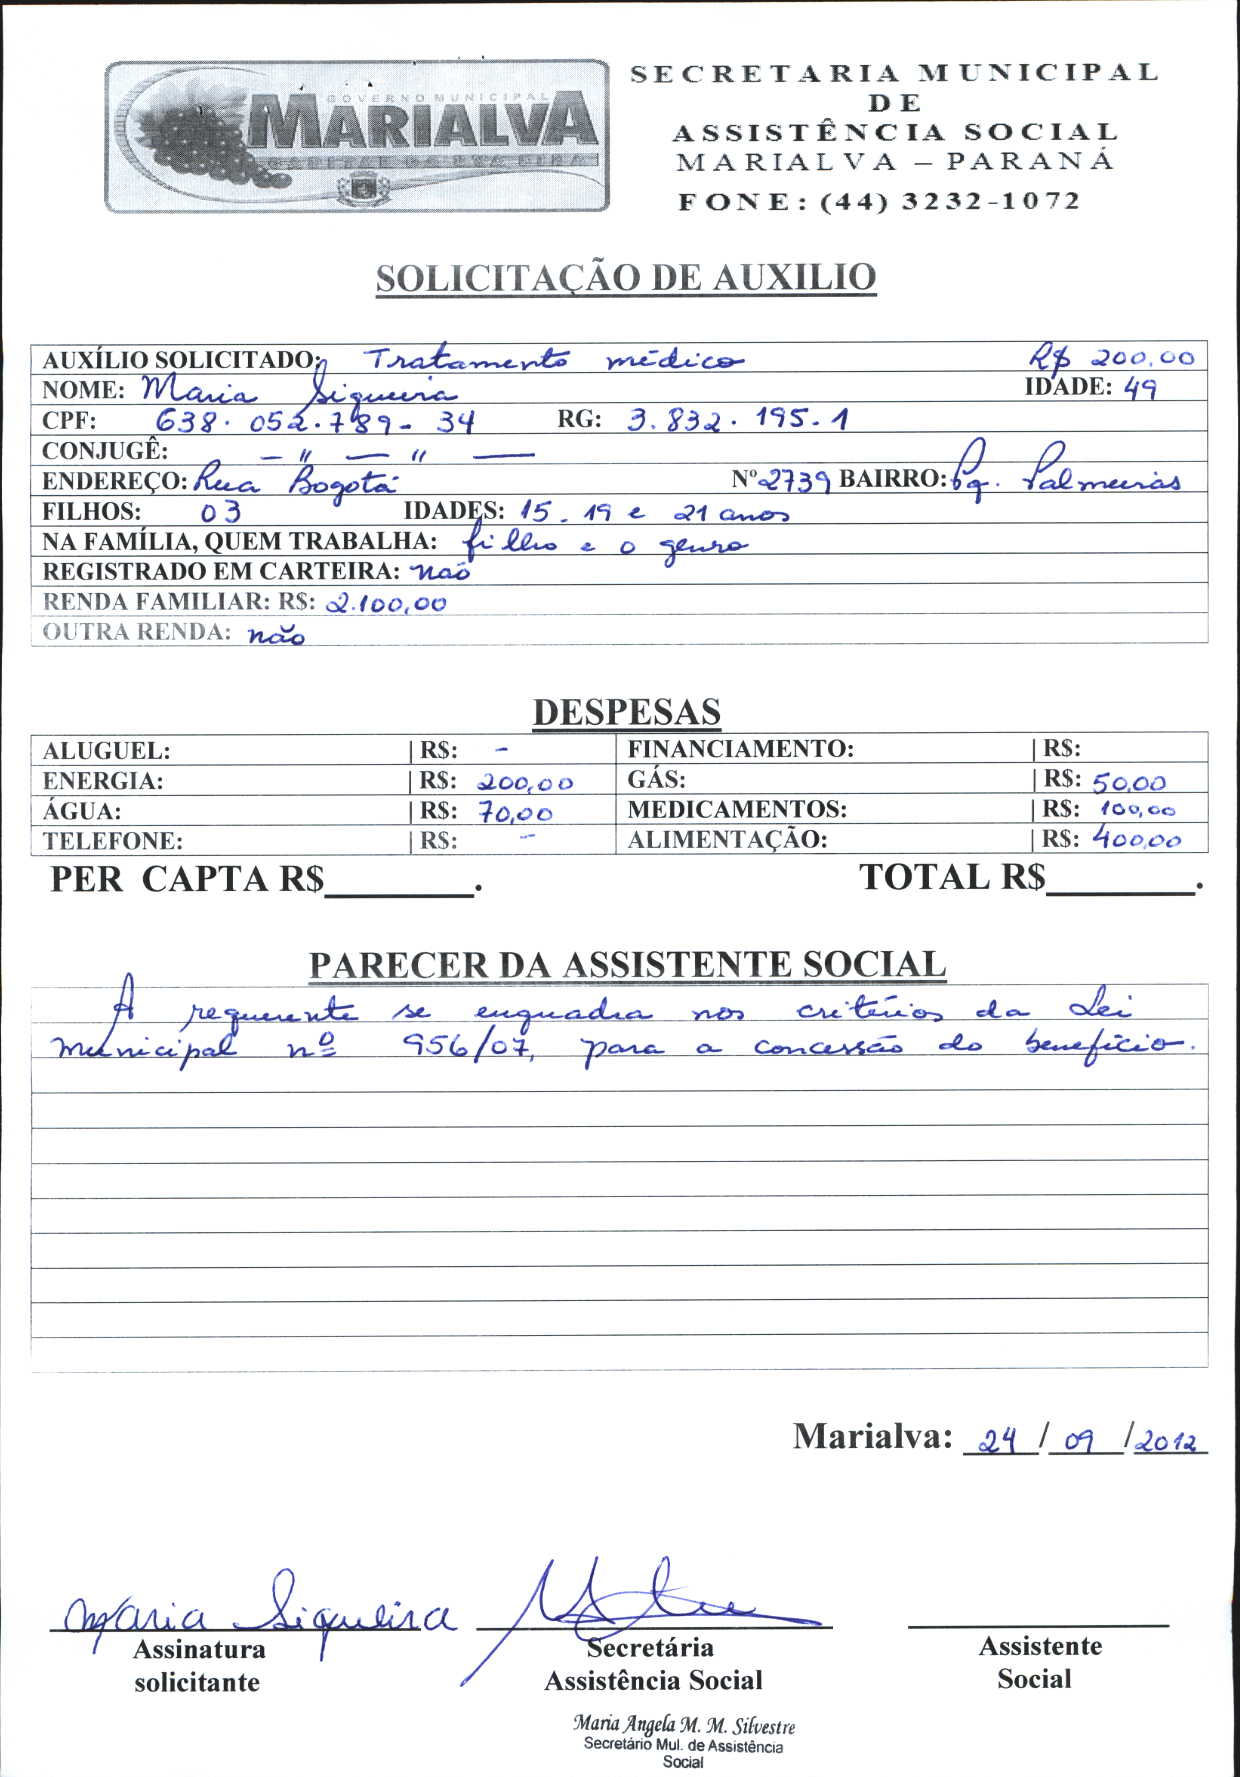 GOVERNO MUNICIPAL
MARIALVA
CAPITAL DA UVA FINA
SECRETARIA MUNICIPAL
DE
ASSISTÊNCIA SOCIAL
MARIALVA – PARANÁ
FONE: (44) 3232-1072
SOLICITAÇÃO DE AUXILIO
AUXÍLIO SOLICITADO: Tratamento médico R$ 200,00
NOME: Maria Siqueira IDADE: 49
CPF: 638.052.789-34 RG: 3.832.195.1
CONJUGÊ: – " — " —
ENDEREÇO: Rua Bogotá Nº 2739 BAIRRO: Pq. Palmeiras
FILHOS: 03 IDADES: 15 . 19 e 21 anos
NA FAMÍLIA, QUEM TRABALHA: filho e o genro
REGISTRADO EM CARTEIRA: não
RENDA FAMILIAR: R$: 2.100,00
OUTRA RENDA: não
DESPESAS
ALUGUEL: | R$: - FINANCIAMENTO: | R$:
ENERGIA: | R$: 200,00 GÁS: | R$: 50,00
ÁGUA: | R$: 70,00 MEDICAMENTOS: | R$: 100,00
TELEFONE: | R$: - ALIMENTAÇÃO: | R$: 400,00
PER CAPTA R$________. TOTAL R$________.
PARECER DA ASSISTENTE SOCIAL
A requerente se enquadra nos critérios da Lei
Municipal nº 956/07, para a concessão do benefício.
Marialva: 24 / 09 / 2012
Maria Siqueira
Assinatura Secretária Assistente
solicitante Assistência Social Social
Maria Angela M. M. Silvestre
Secretário Mul. de Assistência
Social